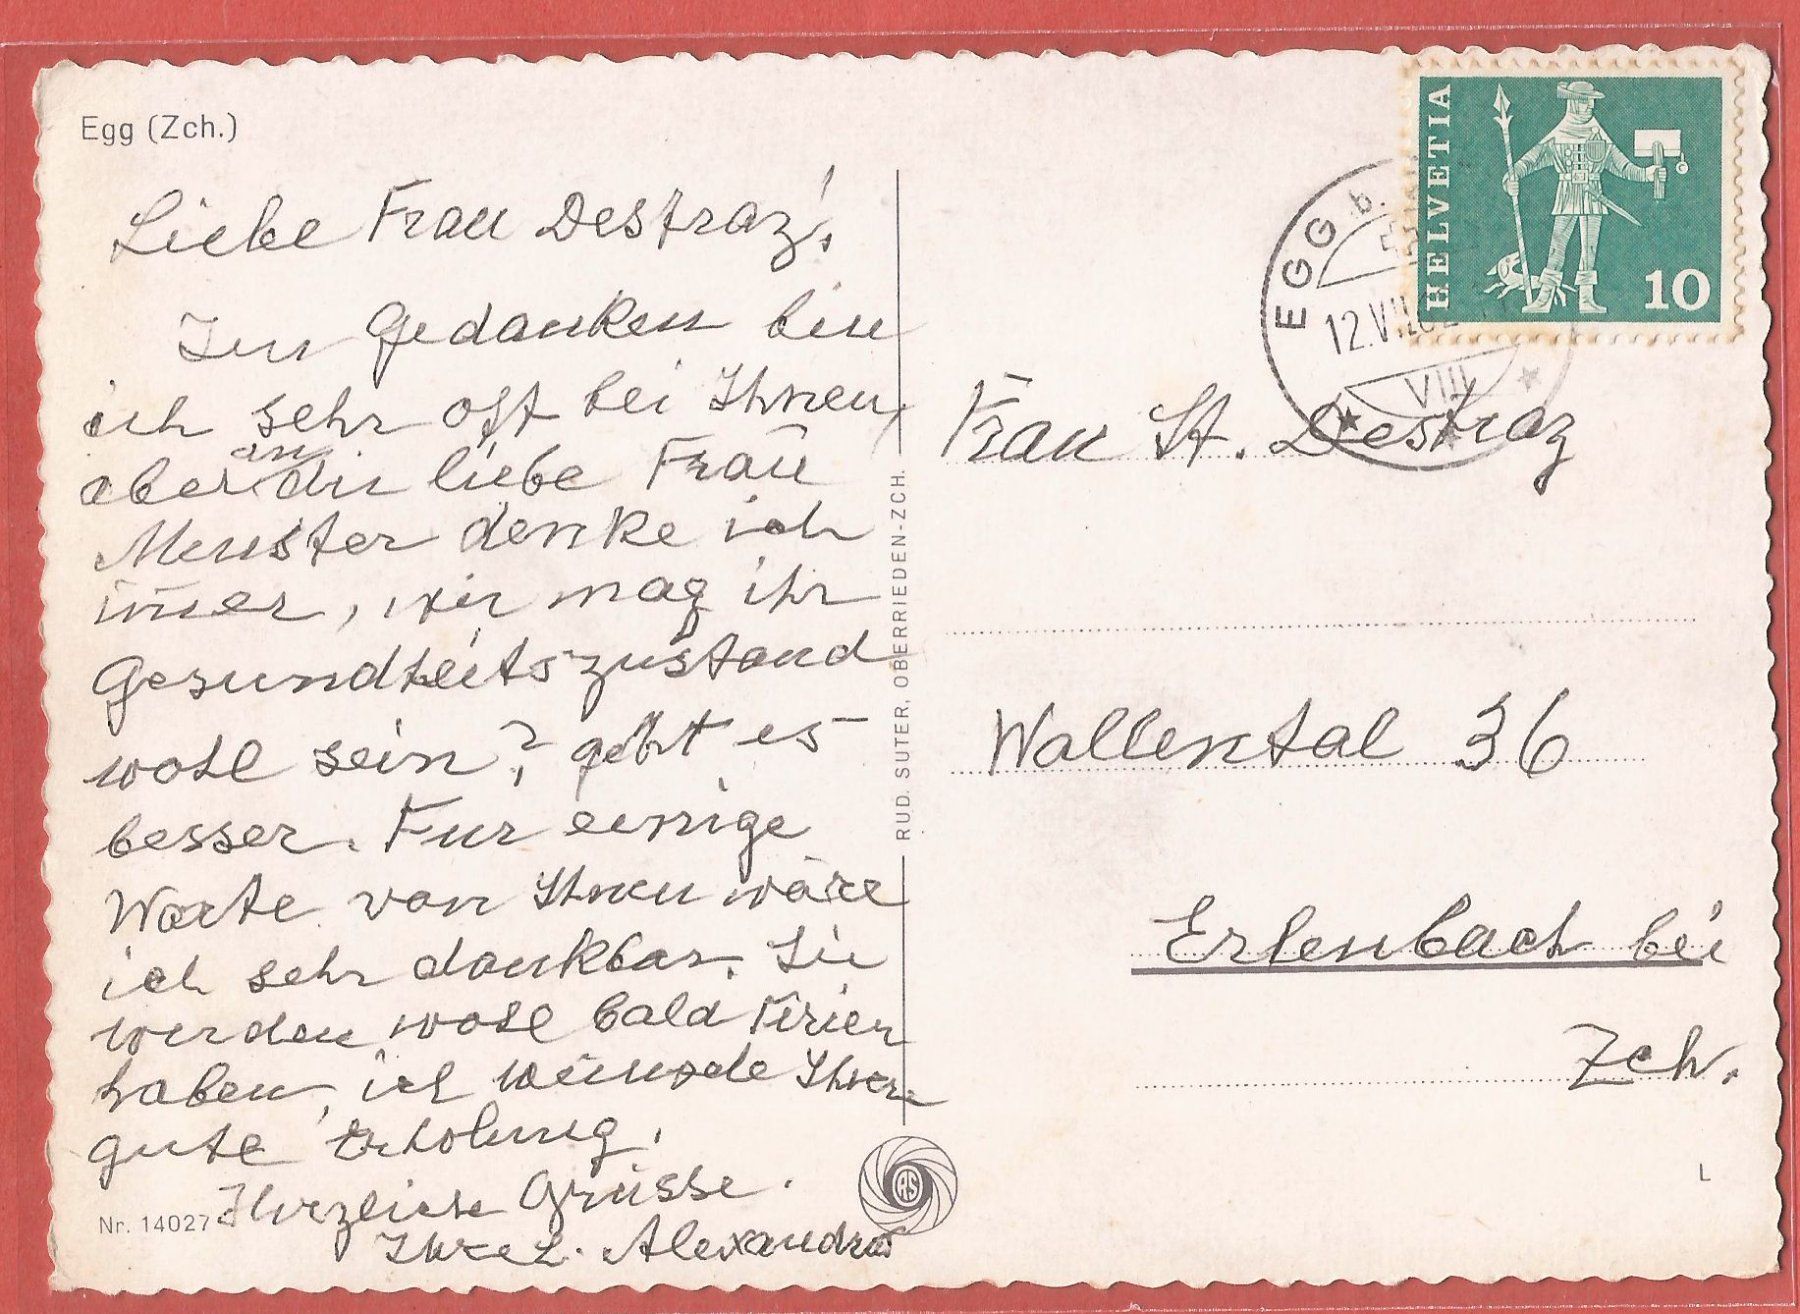 Egg (Zch.)
Liebe Frau Destraz!
In Gedanken bin
ich sehr oft bei Ihnen,
aber an die liebe Frau
Menster denke ich
im̄er, wie mag ihr
Gesundheitszustand
wohl sein? geht es
besser. Fur einige
Worte von Ihnen wäre
ich sehr dankbar. Sie
werden wohl bald Ferien
haben, ich wünsche Ihnen
gute Erholung.
Herzliche Grüsse.
Ihre L. Alexandra
Nr. 14027
RUD. SUTER, OBERRIEDEN-ZCH.
RS
HELVETIA
10
EGG b.
12.VII
VIII
Frau St. Destraz
Wallental 36
Erlenbach bei
Zch.
L